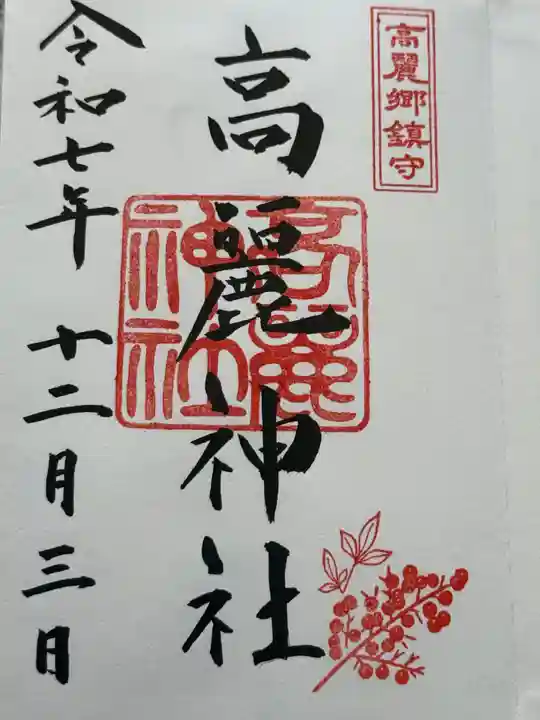 高麗郷鎮守
高麗神社
令和七年 十二月三日